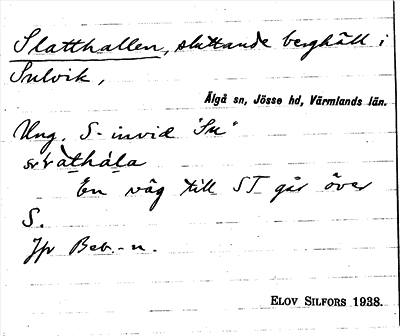 Slatthallen, sluttande berghäll i
Sulvik,
Älgå sn, Jösse hd, Värmlands län.
Ung. S-invid "Su"
En väg till ST går över
S.
Jfr Beb.-n.
ELOV SILFORS 1938.